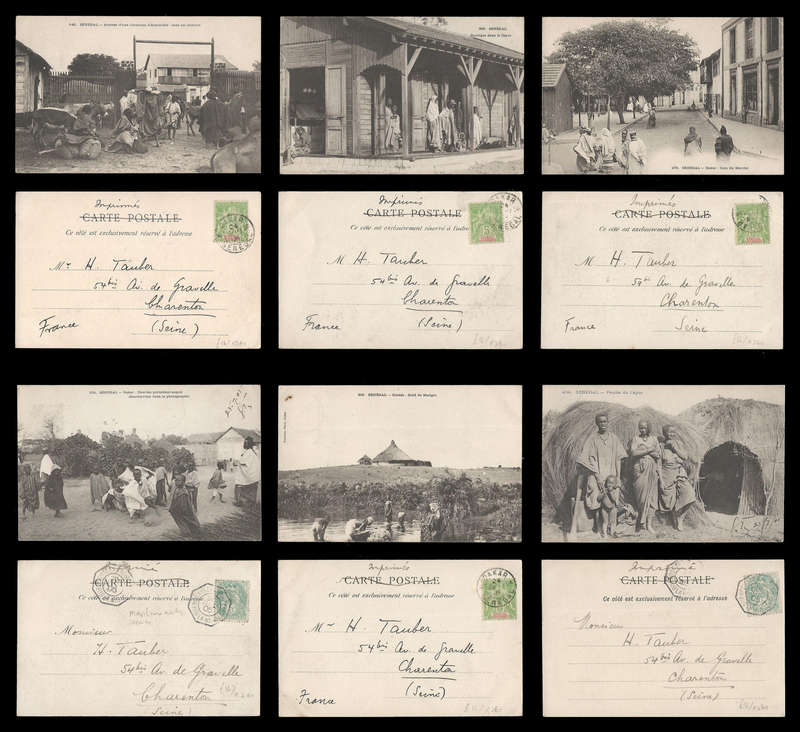 SÉNÉGAL
SÉNÉGAL
Boutique dans la Gare
SÉNÉGAL - Dakar - Coin du Marché
Imprimés
CARTE POSTALE
Ce côté est exclusivement réservé à l'adresse
Mr H. Tauber
54bis Av. de Gravelle
Charenton
(Seine)
France
Imprimés
CARTE POSTALE
Ce côté est exclusivement réservé à l'adresse
DAKAR
SENEGAL
M H. Tauber
54bis Av. de Gravelle
Charenton
(Seine)
France
Imprimés
CARTE POSTALE
Ce côté est exclusivement réservé à l'adresse
M H. Tauber
54bis Av. de Gravelle
Charenton
Seine
France
SÉNÉGAL - Dakar
SÉNÉGAL
SÉNÉGAL
Imprimé
CARTE POSTALE
Ce côté est exclusivement réservé à l'adresse
Monsieur
H. Tauber
54bis Av. de Gravelle
Charenton
(Seine)
Imprimés
CARTE POSTALE
Ce côté est exclusivement réservé à l'adresse
DAKAR
Mr H. Tauber
54bis Av. de Gravelle
Charenton
(Seine)
France
Imprimé
CARTE POSTALE
Ce côté est exclusivement réservé à l'adresse
Monsieur
H. Tauber
54bis Av. de Gravelle
Charenton
(Seine)